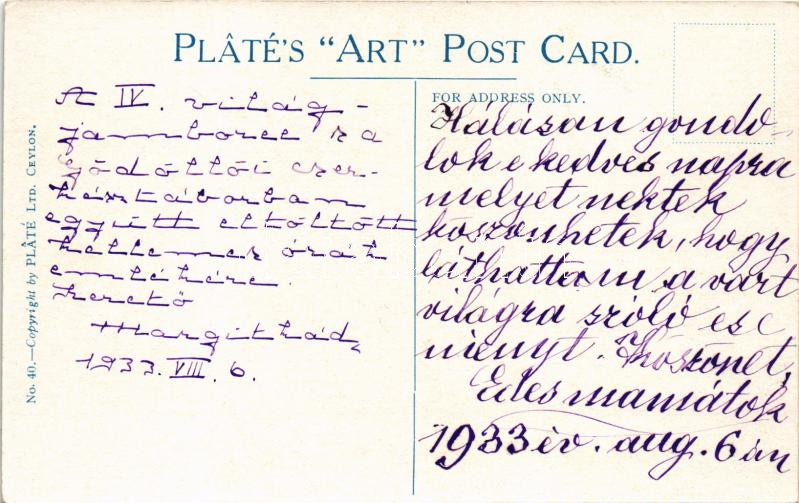 PLÂTÉ'S "ART" POST CARD.
FOR ADDRESS ONLY.
No. 40.—Copyright by PLÂTÉ LTD. CEYLON.
A IV. világ-
jamboree s a
gödöllői cser-
késztáborban
együtt eltöltött
kellemes órák
emlékére.
szerető
1933. VIII. 6.
Hálásan gondo-
lok e kedves napra
melyet nektek
köszönhetek, hogy
láthattam a várt
világra szóló ese
ményt. Köszönet,
Édes mamátok
1933 év. aug. 6 án